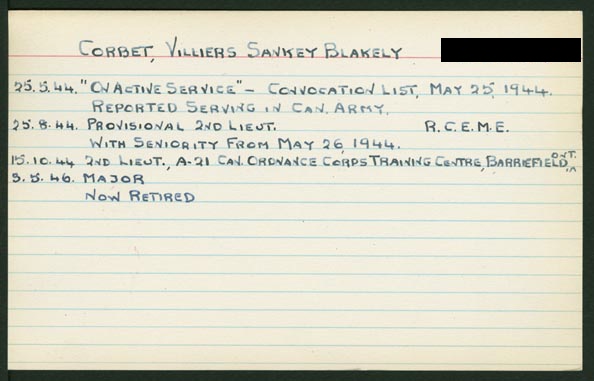 CORBET, VILLIERS SANKEY BLAKELY
25.5.44. "ON ACTIVE SERVICE" - CONVOCATION LIST, MAY 25, 1944.
REPORTED SERVING IN CAN. ARMY.
25.8.44. PROVISIONAL 2ND LIEUT. R.C.E.M.E.
WITH SENIORITY FROM MAY 26, 1944.
15.10.44 2ND LIEUT., A-21 CAN. ORDNANCE CORPS TRAINING CENTRE, BARRIEFIELD, ONT.
3.5.46. MAJOR
NOW RETIRED